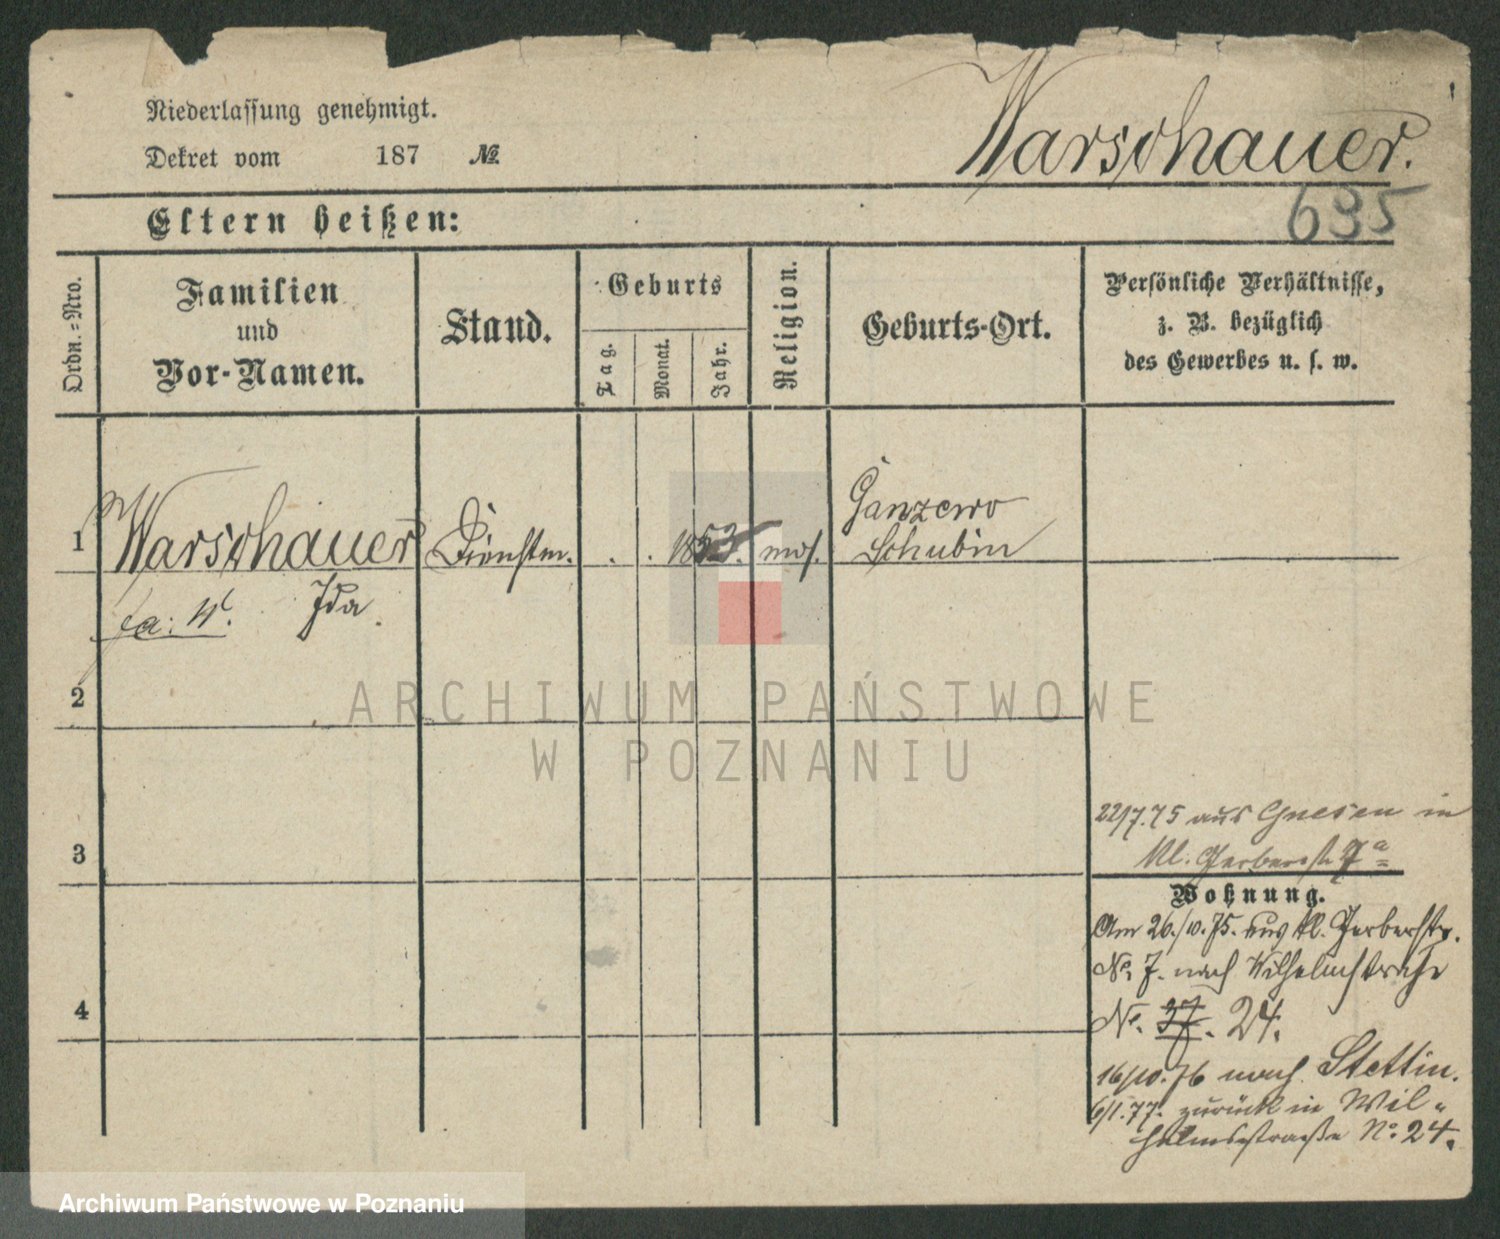 Niederlassung genehmigt.
Dekret vom 187 №
Warschauer.
695
Eltern heißen:
Ordn.=Nro.
Familien
und
Vor-Namen.
Stand.
Geburts
Tag.
Monat.
Jahr.
Religion.
Geburts-Ort.
Persönliche Verhältnisse,
z. B. bezüglich
des Gewerbes u. s. w.
1
Warschauer
Ida
Dienstm.
. . 1853. mos.
Ganzewo
Schubin
2
3
4
22/7.75 aus Gnesen in
Kl. Gerberstr. 7a
Wohnung.
Am 26./10.75. aus kl. Gerberstr.
No. 7. nach Wilhelmstraße
No. 37. 24.
16/10.76 nach Stettin.
6/1.77. zurück in Wil-
helmsstraße No. 24.
ARCHIWUM PAŃSTWOWE
W POZNANIU
Archiwum Państwowe w Poznaniu